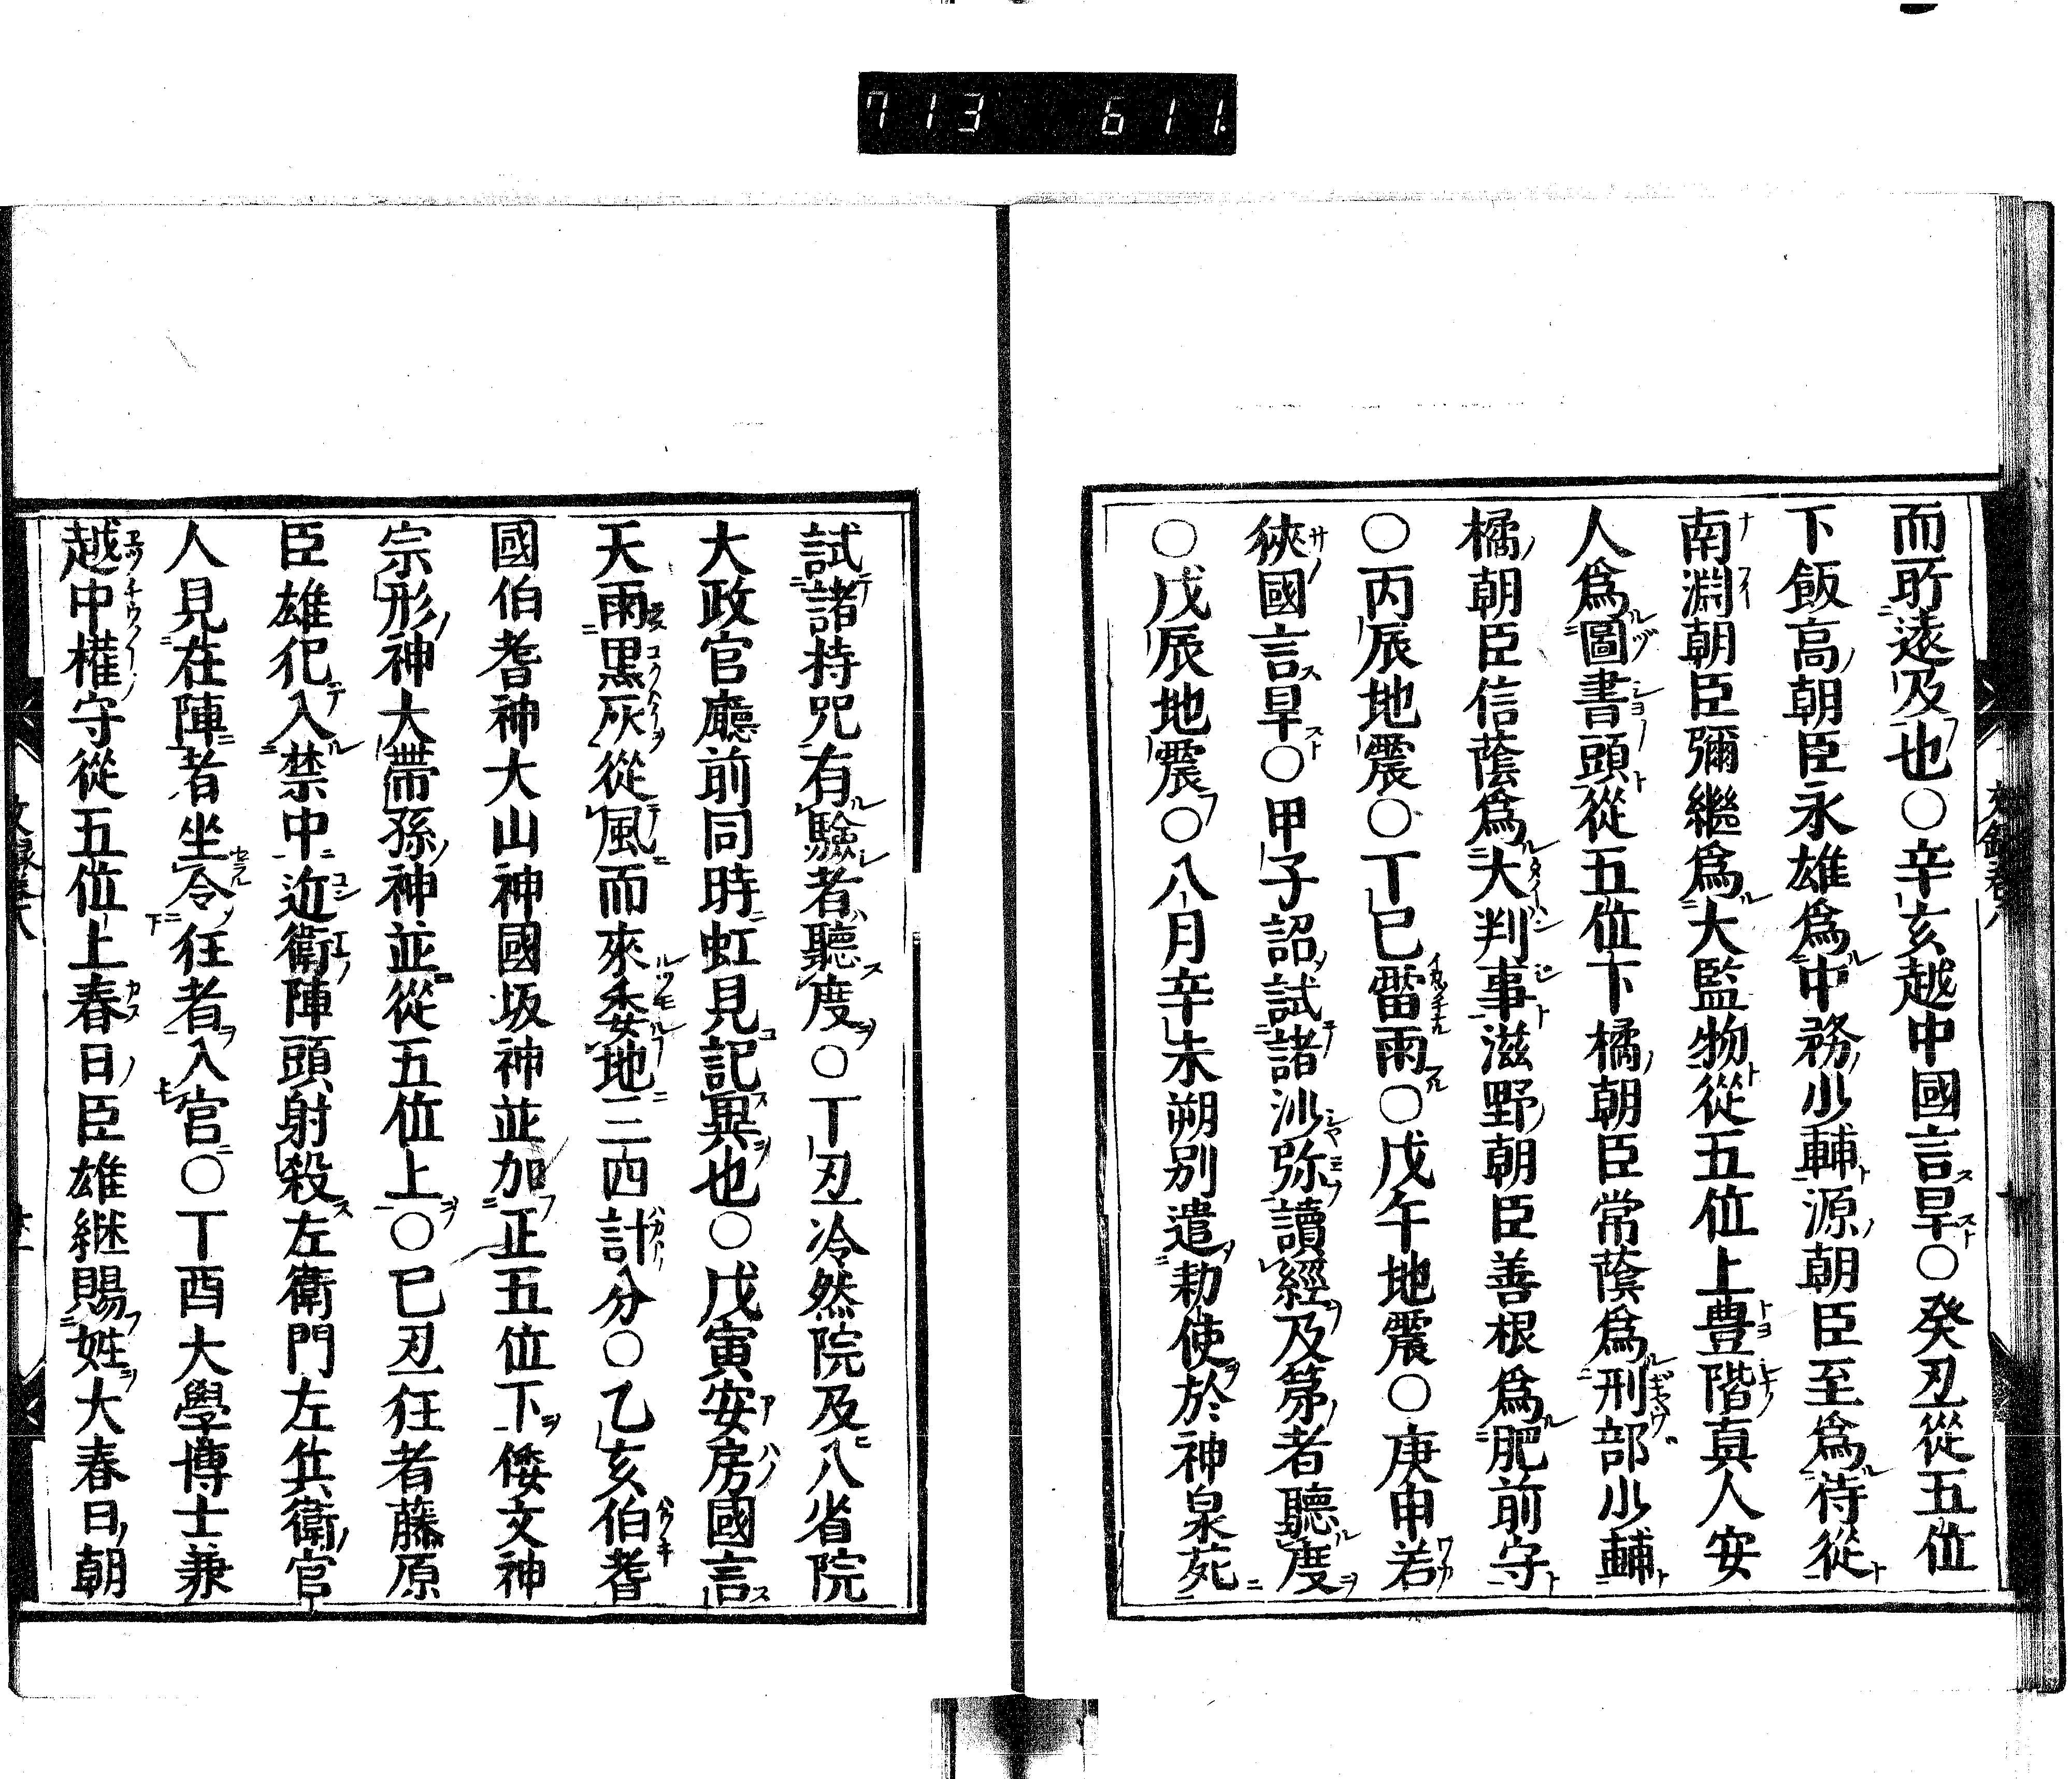 713 611.
而所遠及也○辛亥越中國言旱○癸丑從五位
下飯高朝臣永雄爲中務少輔源朝臣至爲侍從
南淵朝臣彌繼爲大監物從五位上豊階真人安
人爲圖書頭從五位下橘朝臣常蔭爲刑部少輔
橘朝臣信蔭爲大判事滋野朝臣善根爲肥前守
○丙辰地震○丁巳雷雨○戊午地震○庚申若
狹國言旱○甲子詔試諸沙弥讀經及第者聽度
○戊辰地震○八月辛未朔別遣勅使於神泉苑
試諸持咒有驗者聽度○丁丑冷然院及八省院
大政官廳前同時虹見記異也○戊寅安房國言
天雨黒灰從風而來委地三四計分○乙亥伯耆
國伯耆神大山神國坂神並加正五位下倭文神
宗形神大帶孫神並從五位上○已丑狂者藤原
臣雄犯入禁中近衛陣頭射殺左衛門左兵衛官
人見在陣者坐令狂者入官○丁酉大學博士兼
越中權守從五位上春日臣雄継賜姓大春日朝
文録卷八